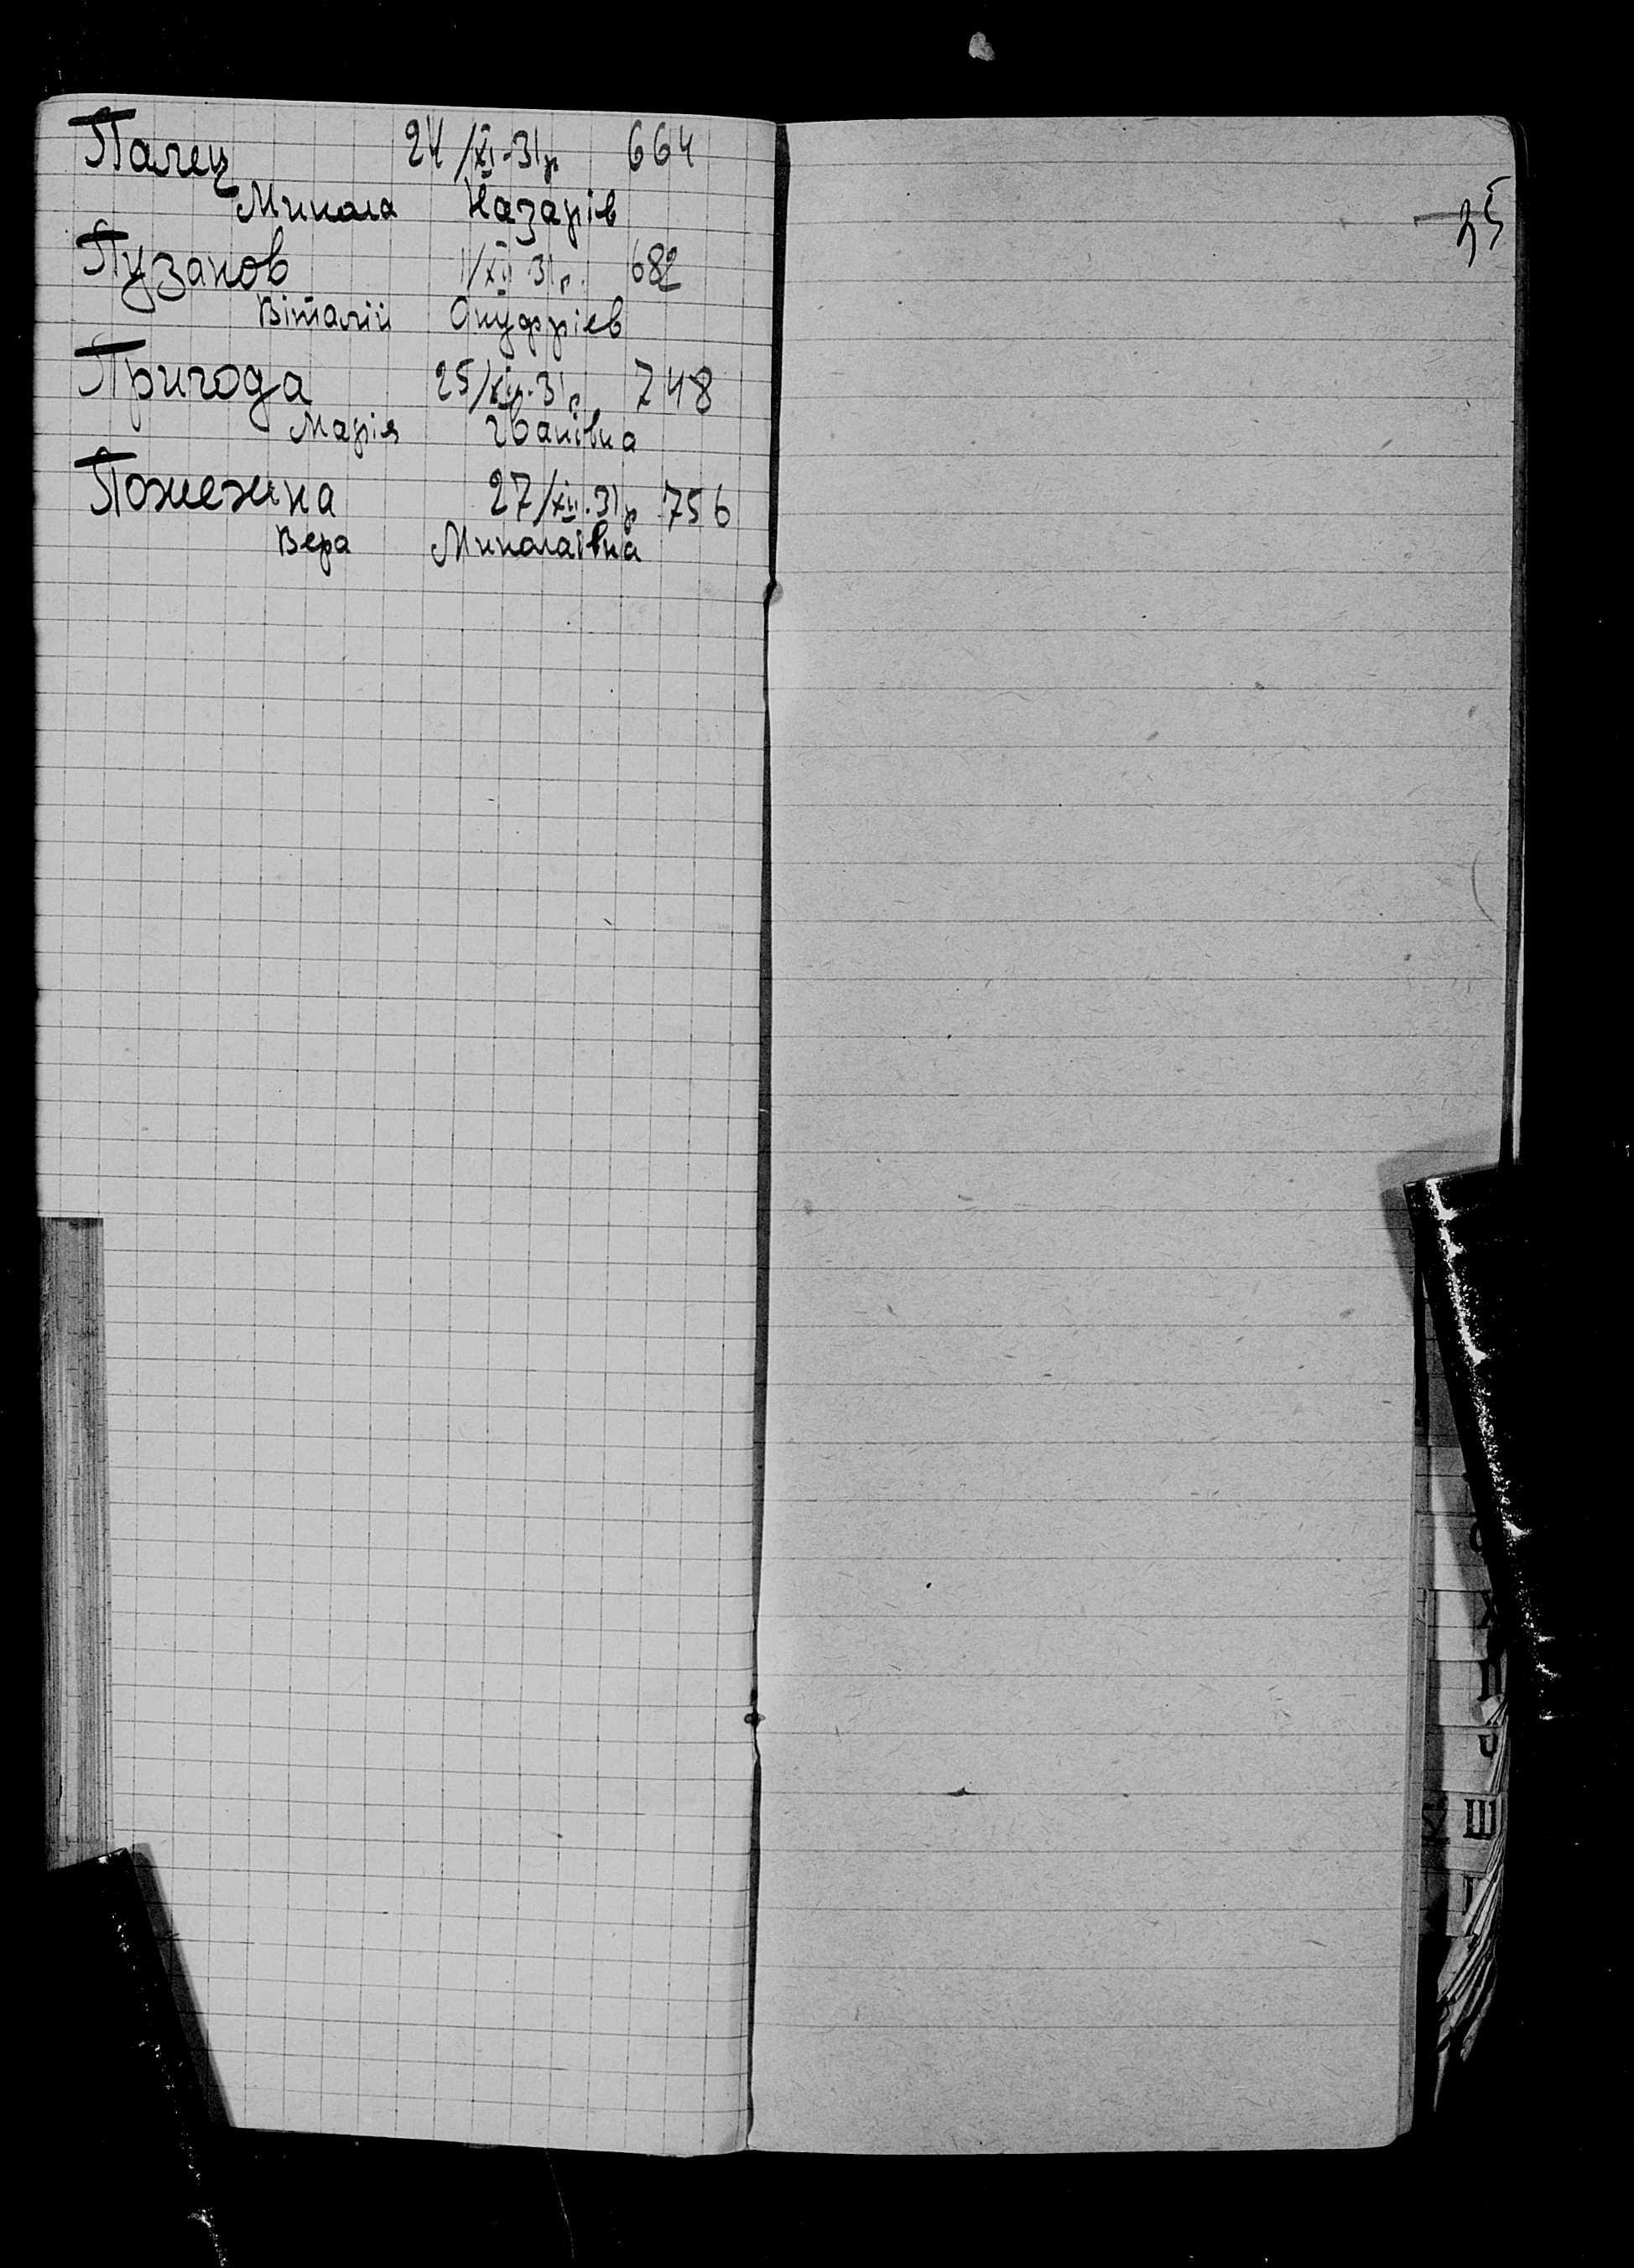 Палец 24/XI-31р 664
Микола Назарів
Пузанов 1/XII 31р. 682
Віталій Онуфріев
Пригода 25/XII-31р 748
Марія Іванівна
Пожежина 27/XII.31р 756
Вера Миколаівна
25
Х
Ш